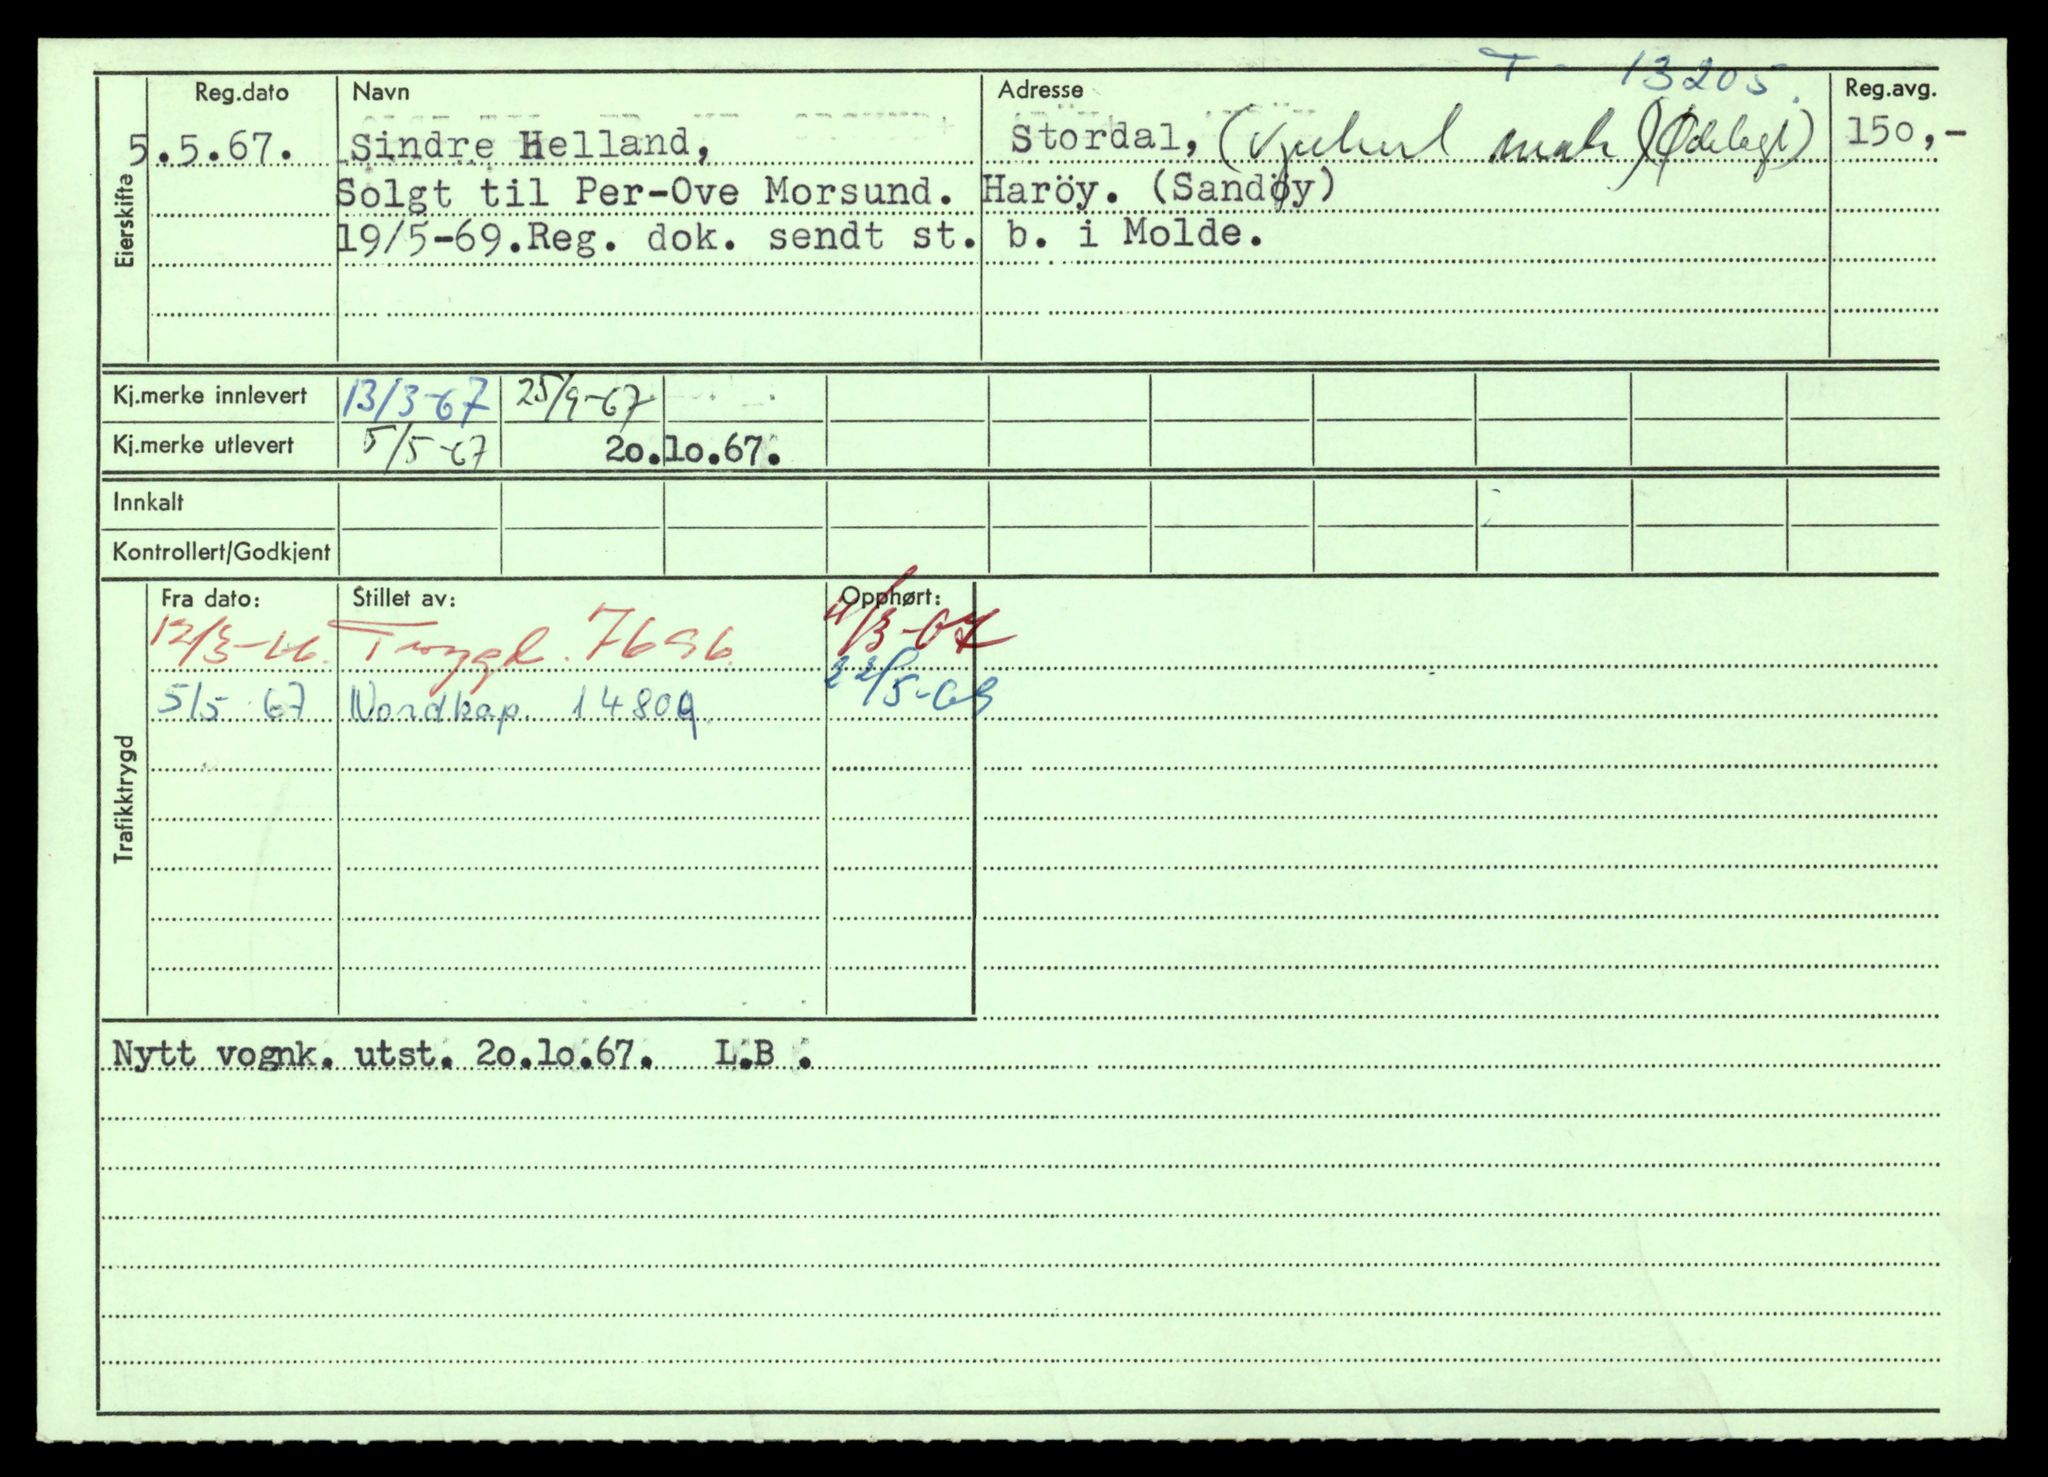 T - 13205.
Reg.dato Navn Adresse Reg.avg.
Eierskifte
5.5.67. Sindre Helland, Stordal, ( merke) (Ødelagt) 150,-
Solgt til Per-Ove Morsund. Haröy. (Sandøy)
19/5-69.Reg. dok. sendt st. b. i Molde.
Kj.merke innlevert 13/3-67 25/9-67
Kj.merke utlevert 5/5-67 20.10.67.
Innkalt
Kontrollert/Godkjent
Trafikktrygd
Fra dato: Stillet av: Opphørt:
12/3-66. Trygd. 7696 11/3-67
5/5 67 Nordkap. 14809. 22/5-69
Nytt vognk. utst. 20.10.67. L.B .